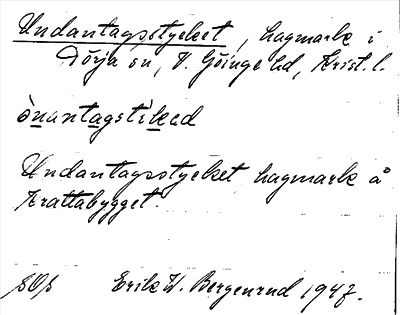 Undantagsstycket, hagmark i
Förja sn, V. Göinge hd, Krist. l.
ònantagstíkæd
Undantagsstycket hagmark å
Krattabygget.
SOs Erik W. Bergenrud 1947.